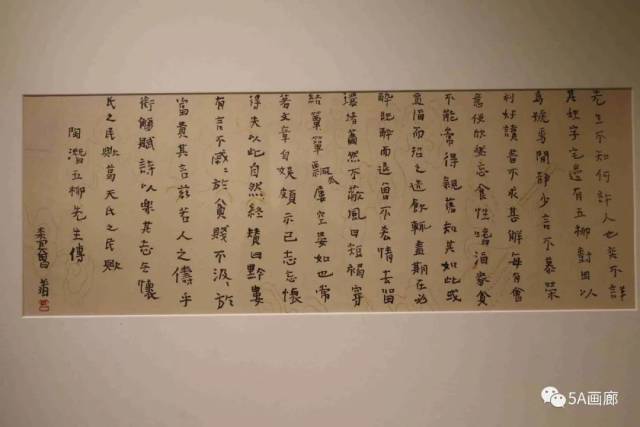 先生不知何許人也亦不詳
其姓字宅邊有五柳樹因以
為號焉閒靜少言不慕榮
利好讀書不求甚解每有會
意便欣然忘食性嗜酒家貧
不能常得親舊知其如此或
置酒而招之造飲輒盡期在必
醉既醉而退曾不吝情去留
環堵蕭然不蔽風日短褐穿
結簞瓢屢空晏如也常
著文章自娛頗示己志忘懷
得失以此自然終贊曰黔婁
有言不戚〻於貧賤不汲〻於
富貴其言茲若人之儔乎
銜觴賦詩以樂其志無懷
氏之民歟葛天氏之民歟
陶潛五柳先生傳
5A画廊